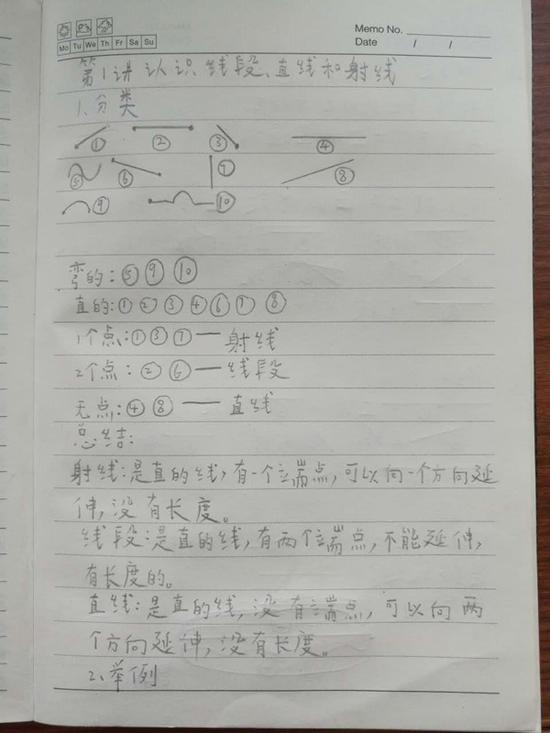 Memo No.
Mo Tu We Th Fr Sa Su
Date / /
第1讲 认识线段、直线和射线
1、分类
① ② ③ ④
⑤ ⑥ ⑦ ⑧
⑨ ⑩
弯的:⑤ ⑨ ⑩
直的:① ② ③ ④ ⑥ ⑦ ⑧
1个点:① ③ ⑦ — 射线
2个点:② ⑥ — 线段
无点:④ ⑧ — 直线
总结:
射线:是直的线,有一个端点,可以向一个方向延
伸,没有长度。
线段:是直的线,有两个端点,不能延伸,
有长度的。
直线:是直的线,没有端点,可以向两
个方向延伸,没有长度。
2、举例